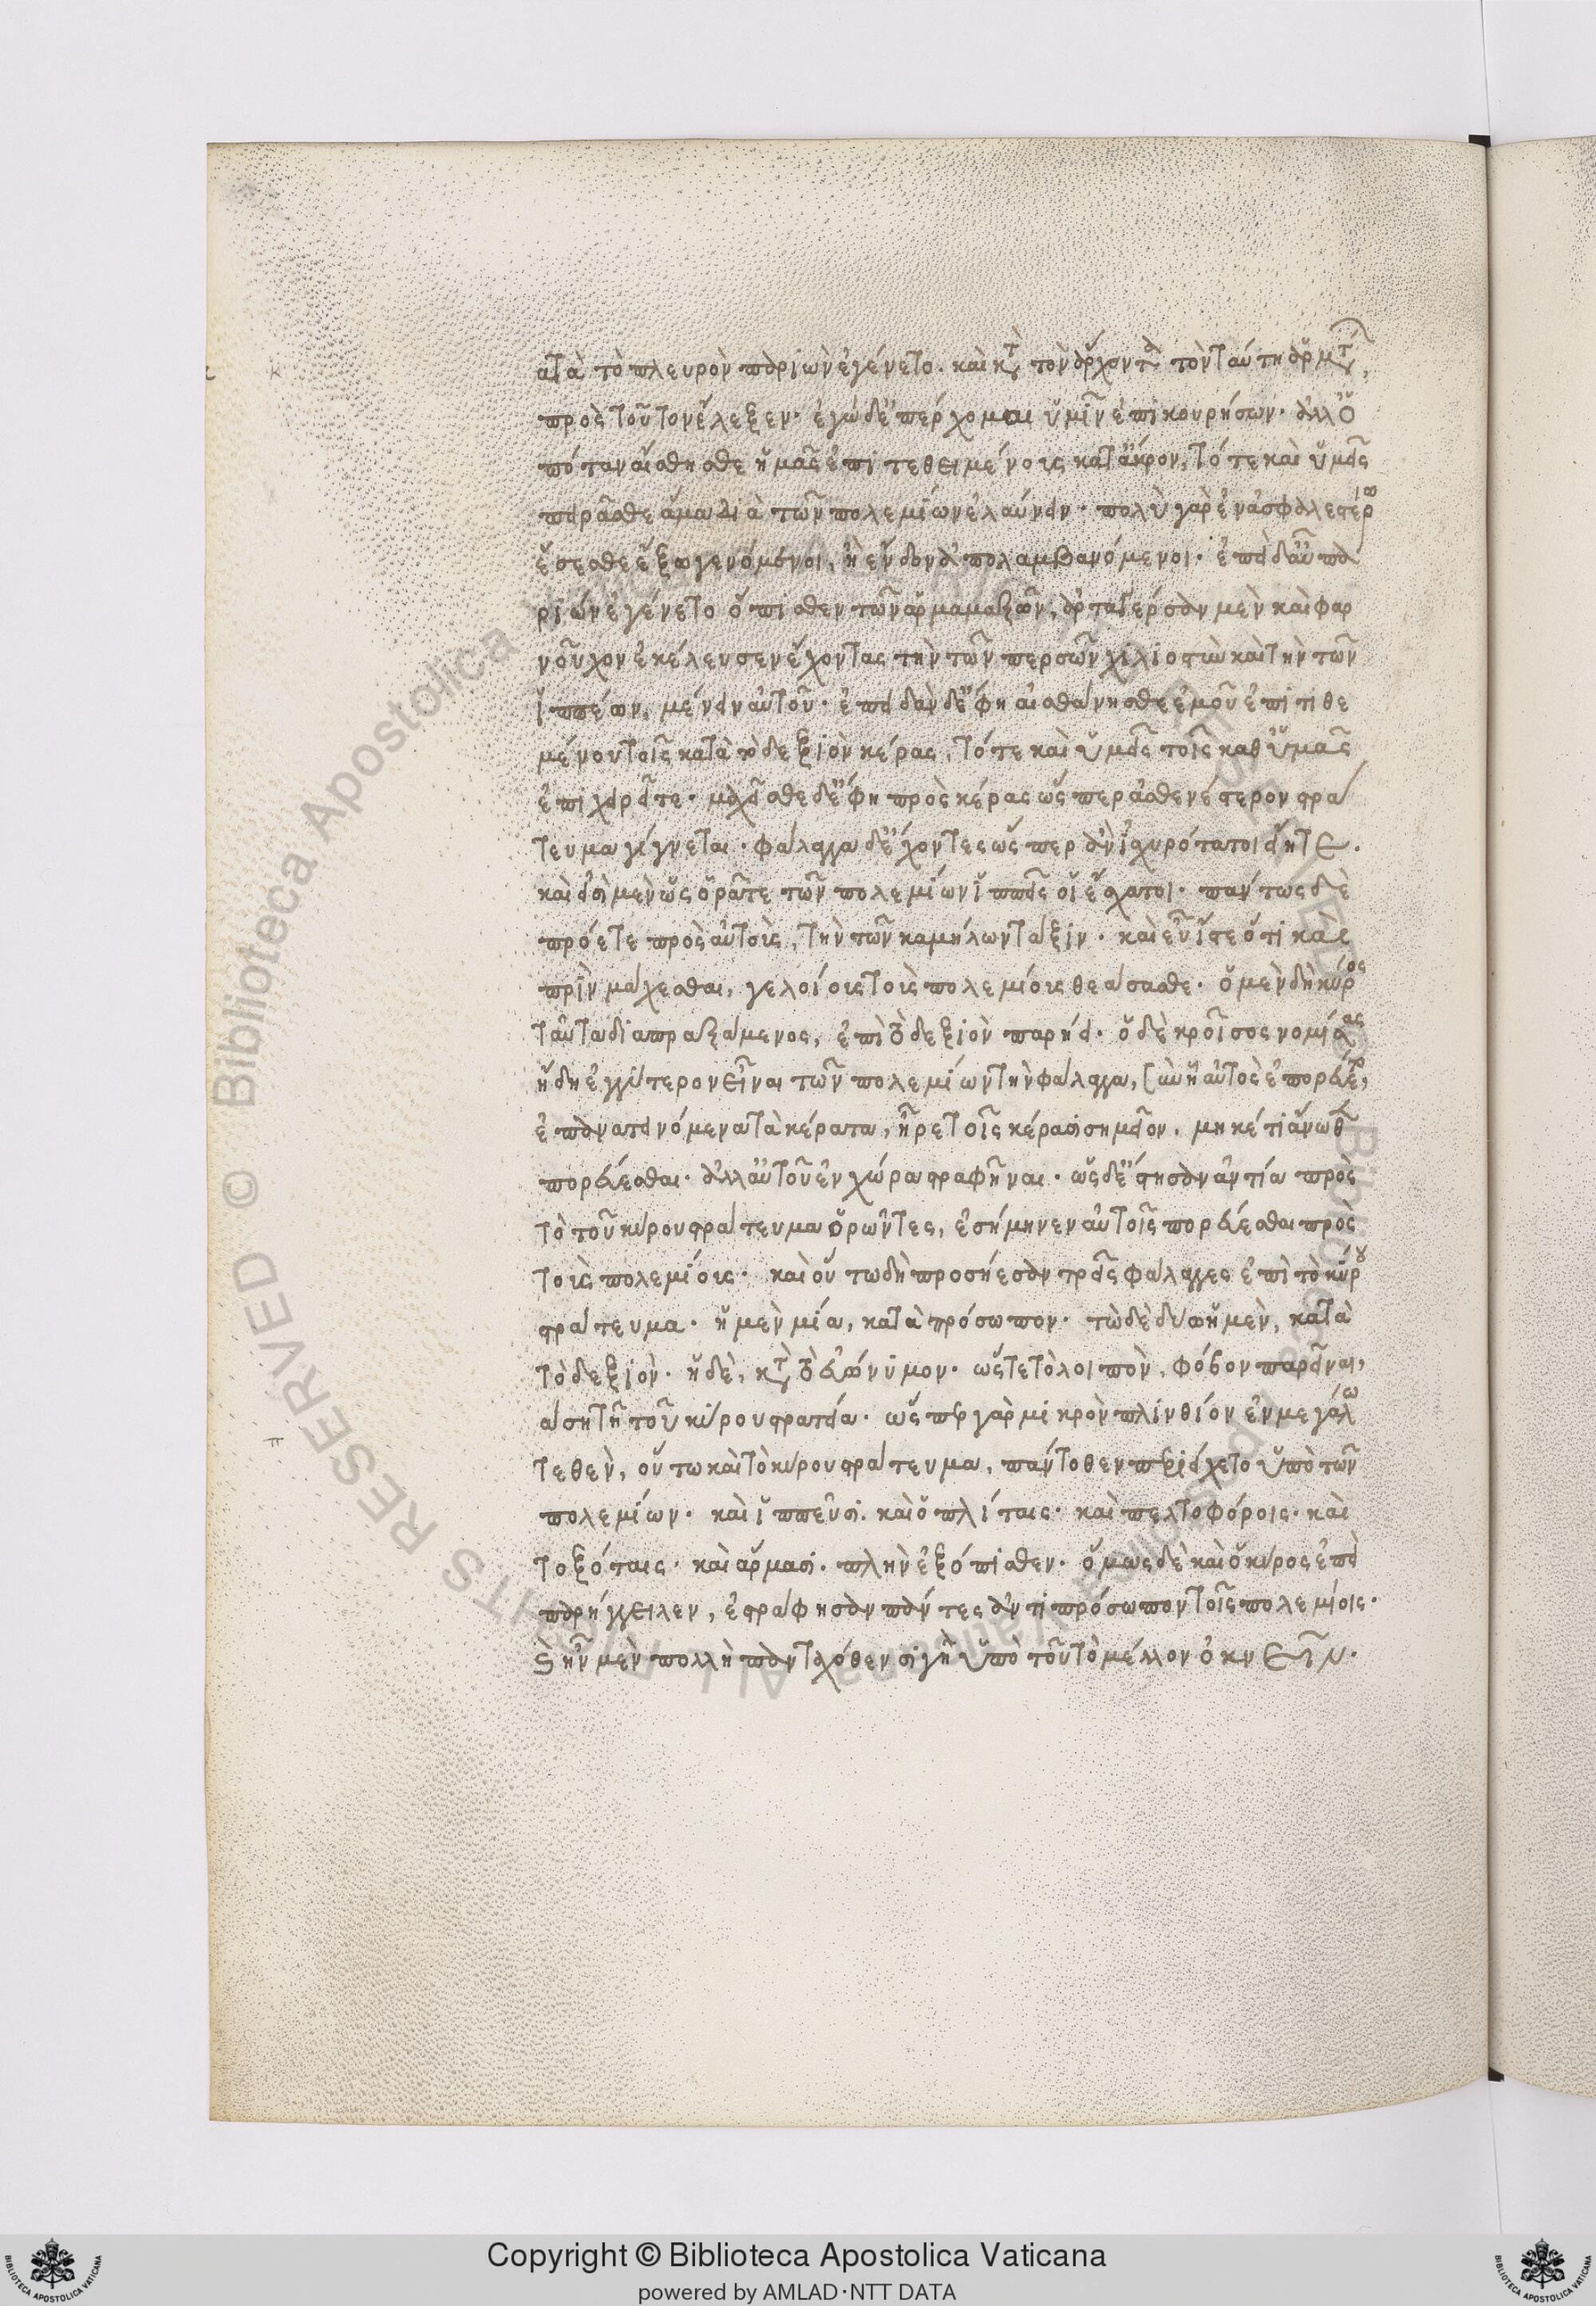 ατὰ τὸ πλευρὸν περιὼν ἐγένετο. καὶ κτ τὸν ἄρχοντα τὸν ταύτη ἁρμτ,
πρὸς τοῦτον ἔλεξεν· ἐγὼ δἔπέρχομαι ὑμῖν ἐπικουρήσων· ἀλλ' ὁ
πόταν αἴσθησθε ἡμᾶς ἐπιτεθειμένοις κατάκρον, τότε καὶ ὑμεῖς
πειρᾶσθε ἅμα διὰ τῶν πολεμίων ἐλαύνειν· πολὺ γὰρ ἐν ἀσφαλεστέρω
ἔσεσθε ἔξω γενόμενοι, ἢ ἔνδον ἀπολαμβανόμενοι· ἐπεὶ δαὖ πα
ριὼν ἐγένετο ὄπισθεν τῶν ἁρμαμαξῶν, ἀρταγέρσαν μὲν καὶ φαρ
νοῦχον ἐκέλευσεν ἔχοντας τὴν τῶν περσῶν χιλιοστὺν καὶ τὴν τῶν
ἱππέων, μένειν αὐτοῦ· ἐπειδὰν δἔφη αἰσθάνησθε ἐμοῦ ἐπιτιθε
μένου τοῖς κατὰ τὸ δεξιὸν κέρας, τότε καὶ ὑμεῖς τοῖς καθ' ὑμᾶς
ἐπιχειρεῖτε· μαχεῖσθε δἔφη πρὸς κέρας ὥσπερ ἀσθενέστερον στρά
τευμα γίγνεται· φάλαγγα δἔχοντες ὥσπερ ἂν ἰσχυρότατοι εἴητε.
καὶ εἰσὶ μὲν ὡς ὁρᾶτε τῶν πολεμίων ἱππεῖς οἱ ἔσχατοι· πάντως δὲ
πρόετε πρὸς αὐτοὺς, τὴν τῶν καμήλων τάξιν· καὶ εὖ ἴστε ὅτι καὶ
πρὶν μάχεσθαι, γελοίους τοὺς πολεμίους θεάσασθε· ὁ μὲν δὴ κύρος
ταῦτα διαπραξάμενος, ἐπὶ τὸ δεξιὸν παρήει· ὁ δὲ κροῖσος νομίσας
ἤδη ἐγγύτερον εἶναι τῶν πολεμίων τὴν φάλαγγα, σὺν ᾗ αὐτὸς ἐπορεύετο,
ἐπανατεινόμενα τὰ κέρατα, ἦρε τοῖς κέρασι σημεῖον. μηκέτι ἄνωθεν
πορεύεσθαι· ἀλλ' αὐτοῦ ἐν χώρα στραφῆναι· ὡς δἔστησαν ἀντία πρὸς
τὸ τοῦ κύρου στράτευμα ὁρῶντες, ἐσήμηνεν αὐτοῖς πορεύεσθαι πρὸς
τοὺς πολεμίους· καὶ οὕτω δὴ προσήεσαν τρεῖς φάλαγγες ἐπὶ τὸ κύρου
στράτευμα· ἡ μὲν μία, κατὰ πρόσωπον· τὼ δὲ δύω ἡ μὲν, κατὰ
τὸ δεξιὸν· ἡ δὲ, κτ τὸ εὐώνυμον· ὥστε τὸ λοιπὸν, φόβον παρεῖναι,
άση τῆ τοῦ κύρου στρατεία· ὥσπερ γὰρ μικρὸν πλινθίον ἐν μεγάλω
τεθὲν, οὕτω καὶ τὸ κύρου στράτευμα, πάντοθεν περιείχετο ὑπὸ τῶν
πολεμίων· καὶ ἱππεῦσι. καὶ ὁπλίταις· καὶ πελτοφόροις· καὶ
τοξόταις· καὶ ἅρμασι. πλὴν ἐξόπισθεν· ὅμως δὲ καὶ ὁ κύρος ἐπεὶ
παρήγγειλεν, ἐστράφησαν πάντες ἀντιπρόσωπον τοῖς πολεμίοις·
ϗ ἦν μὲν πολλὴ πανταχόθεν σιγὴ ὑπὸ τοῦ τὸ μέλλον ὀκνεῖν·